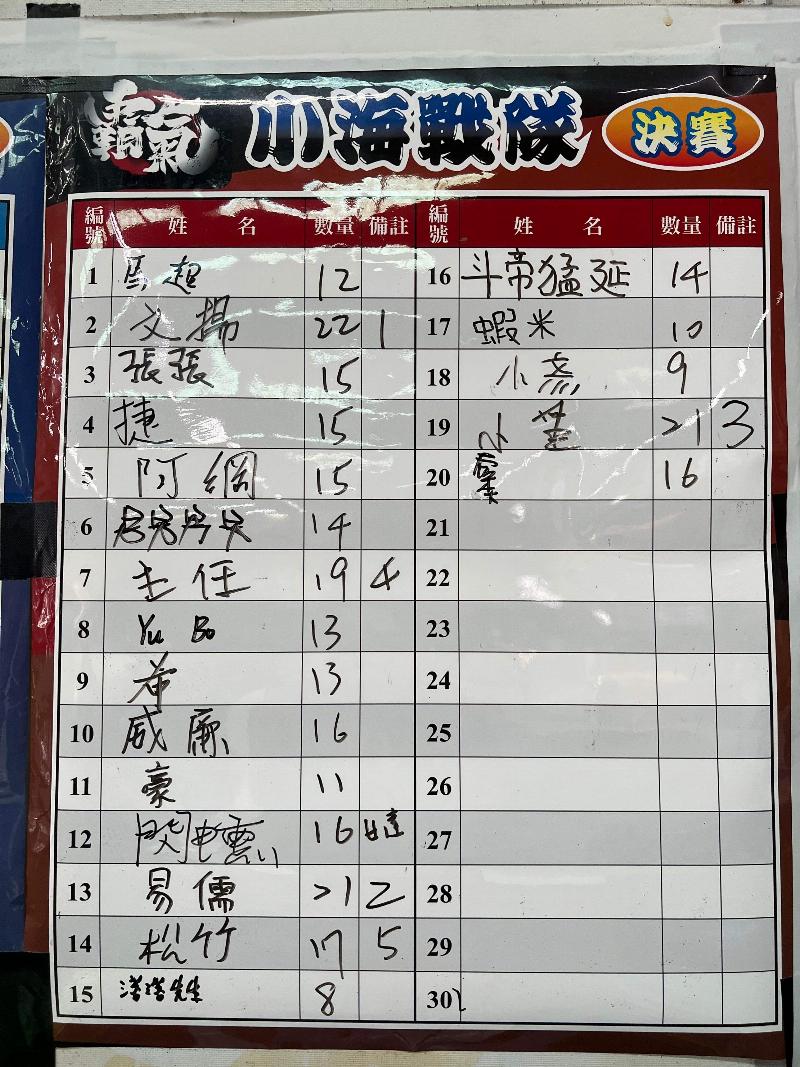 霸氣 小海戰隊 決賽
編號 姓 名 數量 備註
1 馬超 12
2 文揚 22 1
3 張張 15
4 捷 15
5 阿綱 15
6 14
7 主任 19 4
8 Yu Bo 13
9 希 13
10 威廉 16
11 豪 11
12 16
13 易儒 21 2
14 松竹 17 5
15 先生 8
編號 姓 名 數量 備註
16 斗帝猛延 14
17 蝦米 10
18 小 9
19 小 21 3
20 16
21
22
23
24
25
26
27
28
29
30